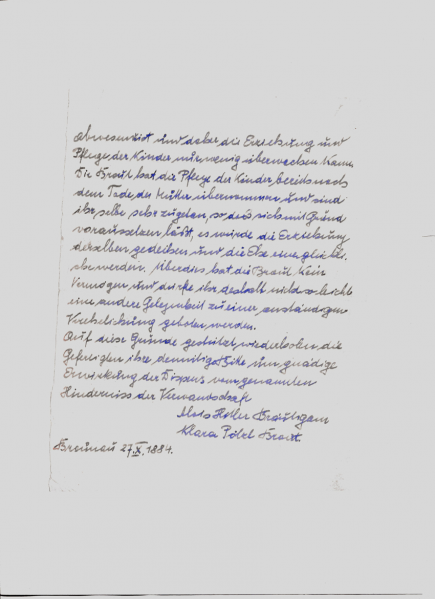 abwesend ist und daher die Erziehung und
Pflege der Kinder nur wenig überwachen kann.
Die Braut hat die Pflege der Kinder bereits nach
dem Tode der Mutter übernommen und sind
ihr selbe sehr zugetan, so daß sich mit Grund
voraussetzen läßt, es würde die Erziehung
derselben gedeihen und die Ehe eine glückli-
che werden. Überdies hat die Braut kein
Vermögen und dürfte ihr deshalb nicht so leicht
eine andere Gelegenheit zu einer anständigen
Verehelichung geboten werden.
Auf diese Gründe gestützt, wiederholen die
Gefertigten ihre demütige Bitte um gnädige
Erwirkung der Dispens vom genannten
Hinderniss der Verwandschaft
Alois Hitler Bräutigam
Klara Pölzl Braut.
Braunau 27/X. 1884.